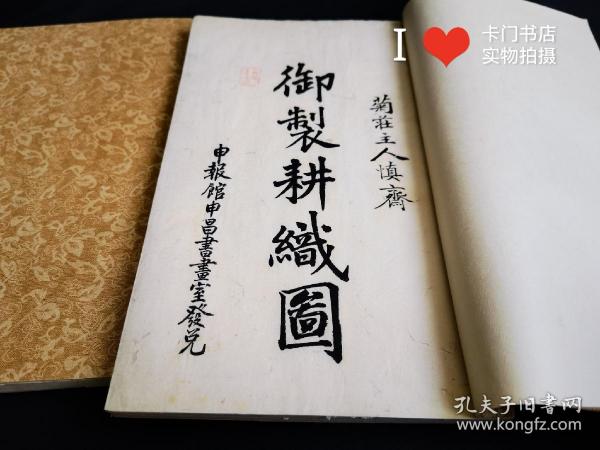 菊莊主人慎齋
御製耕織圖
申報館申昌書畫室發兌
I
卡门书店
实物拍摄
孔夫子旧书网
www.kongfz.com